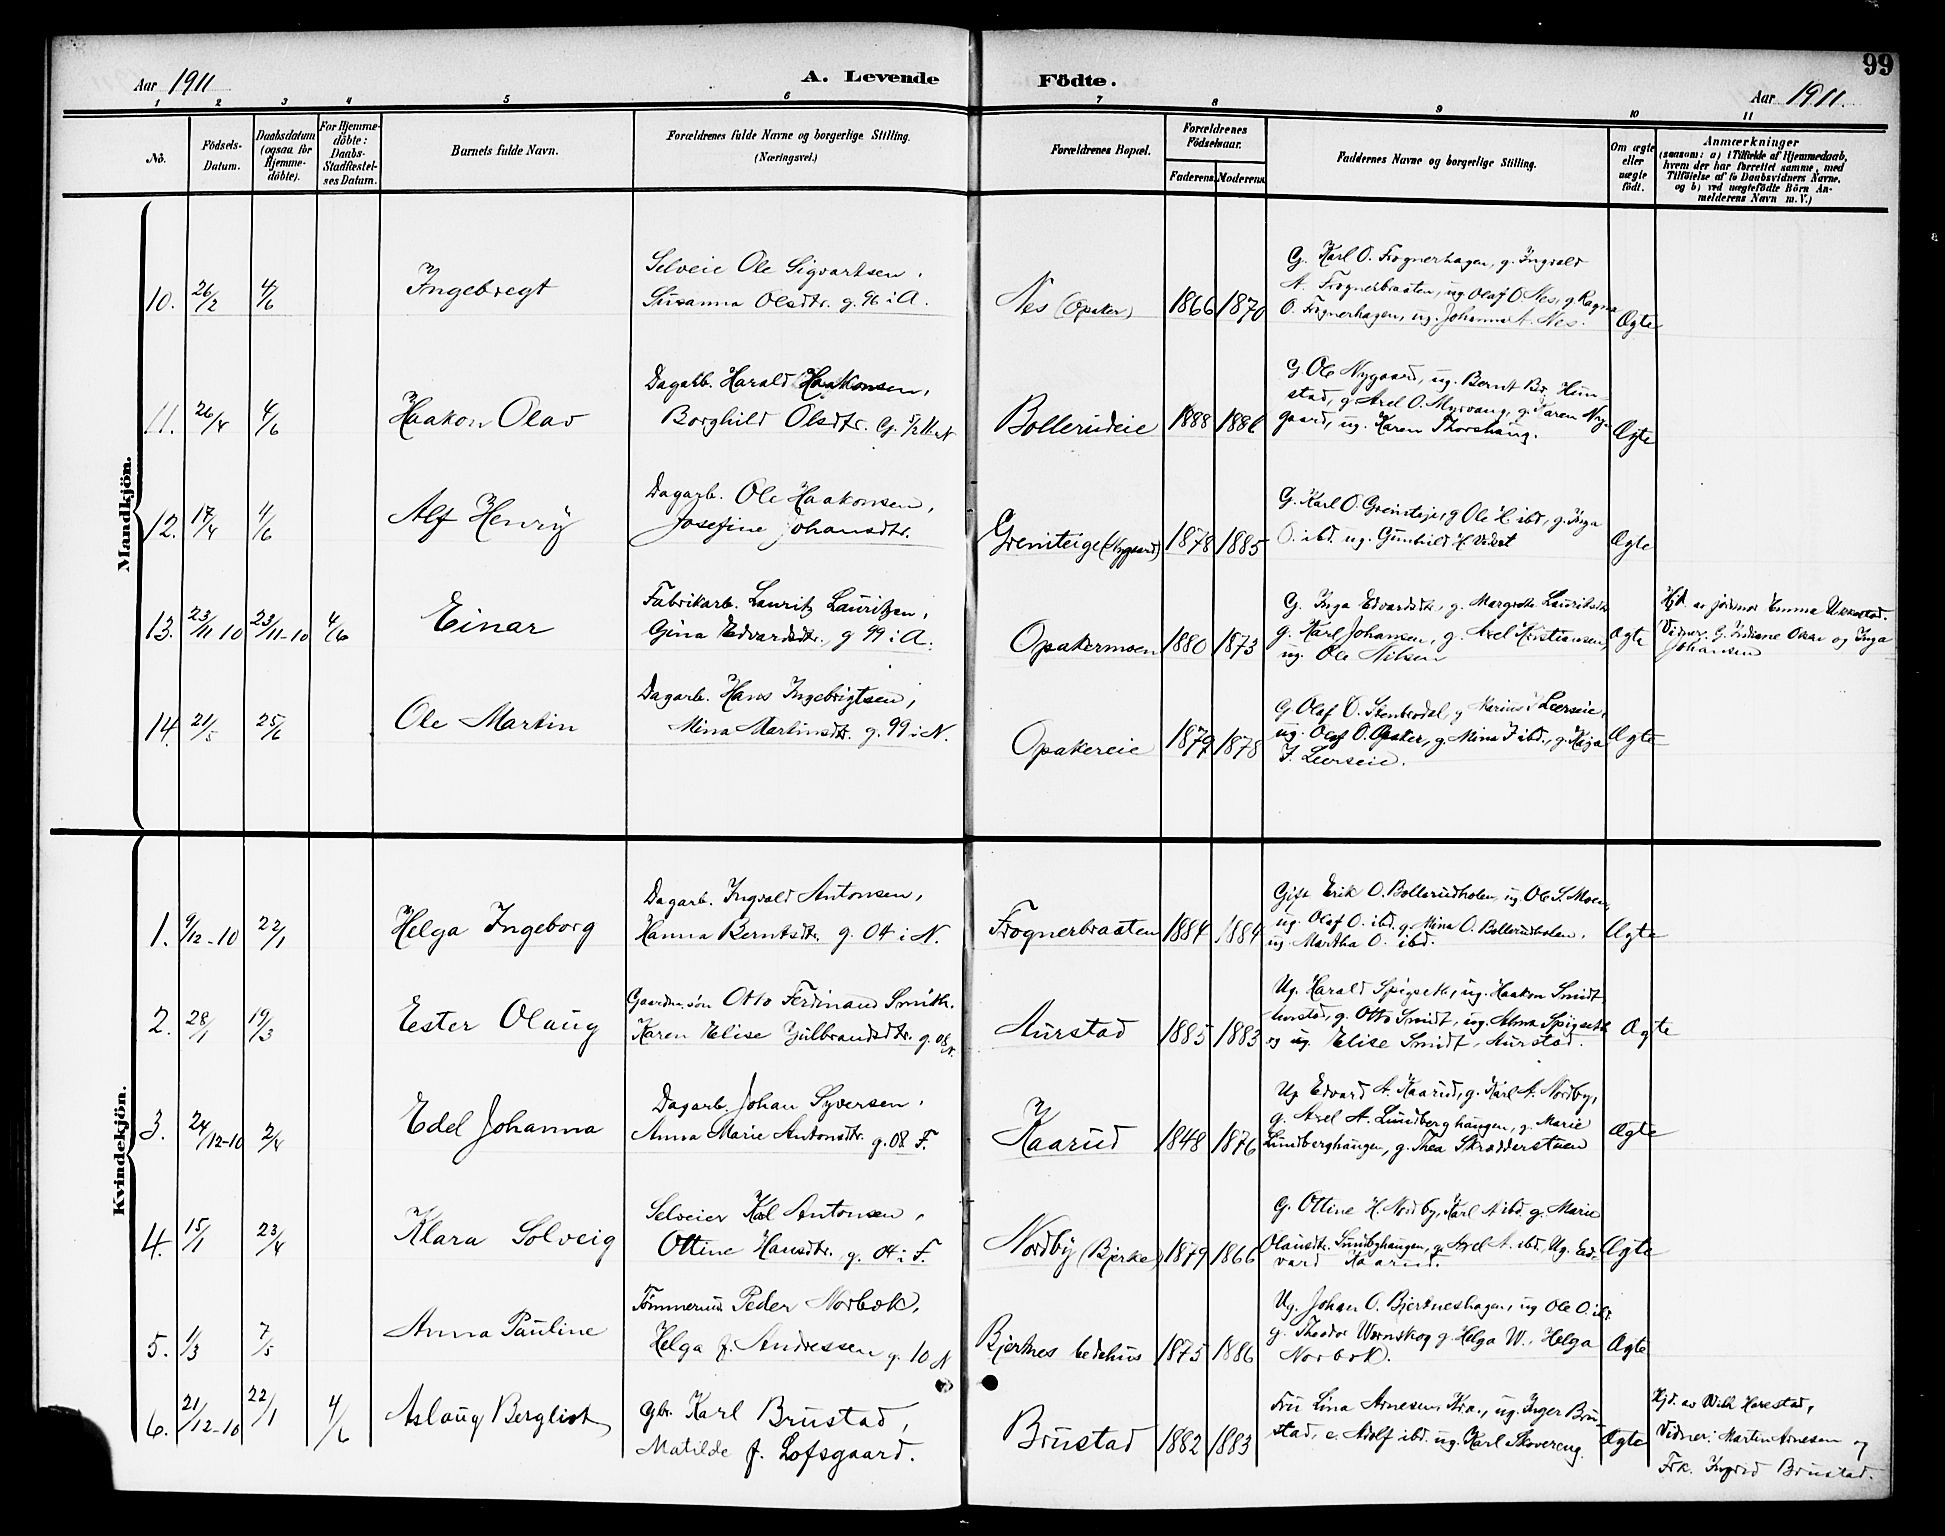 99
Aar 1911
A. Levende Födte.
Aar 1911.
1 2 3 4 5 6 7 8 9 10 11
Nö.
Födsels-
Datum.
Daabsdatum
(ogsaa for
Hjemme-
döbte).
For Hjemme-
döbte:
Daabs-
Stadfæstel-
ses Datum.
Barnets fulde Navn.
Forældrenes fulde Navne og borgerlige Stilling.
(Næringsvei.)
Forældrenes Bopæl.
Forældrenes
Födselsaar.
Faderens. Moderens.
Faddernes Navne og borgerlige Stilling.
Om ægte
eller
uægte
födt.
Anmærkninger
(saasom: a) i Tilfælde af Hjemmedaab,
hvem der har forrettet samme, med
Tilföielse af to Daabsvidners Navne,
og b) ved uægtefödte Börn An-
melderens Navn m. V.)
Mandkjön.
10. 26/2 4/6
Ingebregt
Selveie Ole Sigvartsen,
Susanna Olsdtr. g. 96 i A.
Nes (Opaker) 1866 1870
G. Karl O. Frognerhagen, g. Ingvald
A. Frognerbraaten, ug. Olaf O. Nes, g. Ragna
O. Frognerhagen, ug. Johanna A. Nes.
Ægte
11. 26/4 4/6
Haakon Olav
Dagarb. Harald Haakonsen,
Borghild Olsdtr. G.
Bollerudeie 1888 1886
G. Ole Nygaard, ug. Bernt Hun-
stad, g. Axel O. Myrvang, g. Karen Ny-
gaard, ug. Karen Thorshaug.
Ægte
12. 17/4 4/6
Alf Henry
Dagarb. Ole Haakonsen,
Josefine Johansdtr.
Greniteige (Nygaard) 1878 1885
G. Karl O. Greniteje, g Ole H. ibd, g. Inga
O. ibd. ug. Gunhild H.
Ægte
13. 23/11 10 23/11-10 4/6
Einar
Fabrikarb. Lauritz Lauritzen,
Gina Edvardsdtr., g 99 i A.
Opakermoen 1880 1873
G. Inga Edvardsdtr., g. Margrethe Lauritsdtr
g. Karl Johansen, g. Axel Kristiansen,
ug. Ole Nilsen
Ægte
Hjd. av jordmor Emma
Vidner: G. Oskar og Inga
Johansen
14. 21/5 25/6
Ole Martin
Dagarb. Hans Ingebrigtsen,
Mina Martinsdtr. g. 99 i N.
Opakereie 1879 1878
G. Olaf O. Stenberdal, g Marius Leerseie,
ug. Olaf O. Opaker, g. Mina J ibd., g. Kaja
J. Leerseie.
Ægte
Kvindekjön.
1. 9/12-10 22/1
Helga Ingeborg
Dagarb. Ingvald Antonsen,
Hanna Berntsdtr. g. 04 i N.
Frognerbraaten 1884 1884
Gift Erik O. Bollerudholen, ug. Ole S. Moen,
ug. Olaf O. ibd. g. Mina O. Bollerudholen,
ug. Martha O. ibd.
Ægte
2. 28/1 19/3
Ester Olaug
Gaardm.søn Otto Ferdinand Smith.
Karen Elise Gulbrandsdtr. g. 08 N.
Aurstad 1885 1883
Ug. Harald Spigseth, ug. Haakon Smidt
Aurstad, g. Otto Smidt, ug. Alma Spigseth
og ug. Elise Smidt, Aurstad.
Ægte
3. 24/12-10 2/4
Edel Johanna
Dagarb. Johan Syversen,
Anna Marie Antonsdtr. g. 08 F.
Kaarud 1848 1876
Ug Edvard A. Kaarud, g. Karl A. Nordby,
g. Axel A. Lundberghaugen, g. Marie
Lundberghaugen, g. Thea Skrædderstuen
Ægte
4. 15/1 23/4
Klara Solveig
Selveier Karl Antonsen,
Ottine Hansdtr., g. 04 i F.
Nordby (Bjerke) 1879 1866
G. Ottine H. Nordby, Karl A ibd. g. Marie
Olausdtr. Lundbyhaugen, g. Axel A. ibd., Ug. Ed-
vard Kaarud.
Ægte
5. 1/3 7/5
Anna Pauline
Tømmermd. Peder Norbæk,
Helga f. Andressen g. 10 N
Bjerknes bedehus 1875 1886
Ug. Johan O. Bjerkneshagen, ug Ole O. ibd.
g. Theodor Wornskog g. Helga W., Helga
Norbæk.
Ægte
6. 21/12-10 22/1 4/6
Aslaug Bergliot
Gbr. Karl Brustad,
Matilde f. Lofsgaard.
Brustad 1882 1883
Fru Lina Arnesen, Kra., ug. Inger Bru-
stad, e. Adolf ibd. ug. Karl Skovereng.
Ægte
Hjd. av Vilh Harestad,
Vidner: Martin Arnesen og
Frk. Ingrid Brustad.